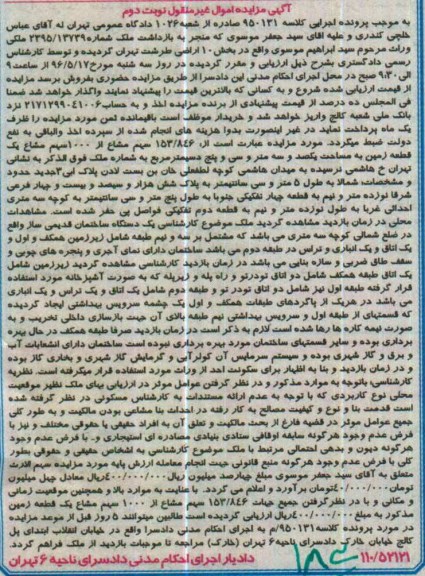 آگهی مزایده اموال غیرمنقول نوبت دوم
به موجب پرونده اجرایی کلاسه ۹۵۰۱۳۱ صادره از شعبه ۱۰۲۶ دادگاه عمومی تهران له آقای عباس
خلجی کندری و علیه آقای سید جعفر موسوی که منجر به بازداشت ملک شماره ۲۳۹۵/۱۳۷۳۹ ملکی
وراث مرحوم سید ابراهیم موسوی واقع در بخش ۱۰ اراضی طرشت تهران گردیده و توسط کارشناس
رسمی دادگستری بشرح ذیل ارزیابی و مقرر گردیده در روز سه شنبه مورخ ۹۶/۵/۱۷ از ساعت ۹
الی ۹:۳۰ صبح در محل اجرای احکام مدنی این دادسرا از طریق مزایده حضوری بفروش برسد مزایده
از قیمت ارزیابی شده شروع و به کسانی که بالاترین قیمت را پیشنهاد نمایند واگذار خواهد شد ضمنا
فی المجلس ده درصد از قیمت پیشنهادی از برنده مزایده اخذ و به حساب ۲۱۷۱۲۹۹۰۴۱۰۰۶ نزد
بانک ملی شعبه کالج واریز خواهد شد و خریدار موظف است باقیمانده ثمن مورد مزایده را ظرف
یک ماه پرداخت نماید در غیر اینصورت بدوا هزینه های انجام شده از سپرده اخذ والباقی به نفع
دولت ضبط میگردد. مورد مزایده عبارت است از: ۱۵۳/۸۴۶ سهم مشاع از ۱۰۰۰ سهم مشاع یک
قطعه زمین به مساحت یکصد و سه متر و سی و پنج دسیمترمربع به شماره ملک فوق الذکر به نشانی
تهران خ هاشمی نرسیده به میدان هاشمی کوچه لطفعلی خان بن بست لادن پلاک ۳ جدید حدود
و مشخصات: شمالا به طول ۵ متر و سی سانتیمتر به پلاک شش هزار و سیصد و بیست و چهار فرعی
شرقا نوزده متر و نیم به قطعه چهار تفکیکی جنوبا به طول پنج متر و سی سانتیمتر به کوچه سه متری
احداثی غربا به طول نوزده متر و نیم به قطعه دوم تفکیکی فواصل پی حفر شده است. مشاهدات
محلی در زمان بازدید مشاهده گردید ملک موضوع کارشناسی یک دستگاه ساختمان قدیمی ساز واقع
در ضلع شمالی کوچه سه متری می باشد که مشتمل بر سه و نیم طبقه شامل زیرزمین همکف و اول و
یک اتاق و یک انباری و تراس در طبقه دوم می باشد ساختمان دارای نمای آجری و پنجره های چوبی و
سقف طاق ضربی و سازه بنایی می باشد در زمان بازدید کارشناسی مشاهده گردید زیرزمین شامل
یک اتاق طبقه همکف شامل دو اتاق تودرتو و راه پله و زیرپله که به صورت آشپزخانه مورد استفاده
قرار گرفته طبقه اول نیز شامل دو اتاق تودر تو و طبقه دوم شامل یک اتاق و یک تراس و یک انباری
می باشد در هریک از پاگردهای طبقات همکف و اول یک چشمه سرویس بهداشتی ایجاد گردیده
که قسمتهای از طبقه اول و سرویس بهداشتی نیم طبقه بالای آن جهت بازسازی داخلی تخریب و به
صورت نیمه کاره ها رها شده است لازم به ذکر است در زمان بازدید صرفا طبقه همکف در حال بهره
برداری بوده و سایر قسمتهای ساختمان مورد بهره برداری نبوده است ساختمان دارای انشعابات آب
و برق و گاز شهری بوده و سیستم سرمایس آن کولرآبی و گرمایش گاز شهری و بخاری گاز بوده
و در زمان بازدید و بنا به اظهار برای سکونت احد از وراث مورد استفاده قرار میگرفته است. نظریه
کارشناسی: باتوجه به موارد مذکور و در نظر گرفتن عوامل موثر در ارزیابی بهای ملک نظیر موقعیت
محلی نوع کاربردی که با توجه به عدم ارائه مستندات به کارشناس مسکونی در نظر گرفته شده
است قدمت بنا و نوع و کیفیت مصالح به کار رفته در احداث بنا مشاعی بودن مالکیت و به طور کلی
جمیع عوامل موثر در قضیه فارغ از بحث مالکیت و تعلق آن به افراد حقیقی یا حقوقی مختلف و نیز با
فرض عدم وجود هرگونه سابقه اوقافی ستادی بنیادی مصادره ای استیجاری و.. با فرض عدم وجود
هرگونه دیون و بدهی احتمالی مرتبط با ملک موضوع کارشناسی به اشخاص حقیقی و حقوقی بطور
کلی با فرض عدم وجود هرگونه منبع قانونی جهت انجام معامله ارزش پایه مورد مزایده سهم الارث
متعلق به آقای سید جعفر موسوی مبلغ چهارصد میلیون ریال ۴۰۰/۰۰۰/۰۰۰ ریال معادل چهل میلیون
تومان ۴۰/۰۰۰/۰۰۰ تومان برآورد و اعلام می گردد. با عنایت به موارد بالا و همچنین موقعیت زمانی
و مکانی و با در نظر گرفتن جمیع جهات ۱۵۳/۸۴۶ سهم مشاع از ۱۰۰۰ سهم مشاع یک قطعه زمین
مذکور به مبلغ ۴۰۰/۰۰۰/۰۰۰ ریال ارزیابی گردیده است. طالبین میتوانند ۵ روز قبل از موعد مزایده
در مورد پرونده کلاسه ۹۵۰۱۳۱/م به اجرای احکام مدنی دادسرا واقع در خیابان انقلاب ابتدای پل
کالج خیابان خارک دادسرای ناحیه ۶ تهران (خارک) مراجعه تا موجبات بازدید از ملک فراهم گردد.
۱۱۰/۵۲۱۲۱ دادیار اجرای احکام مدنی دادسرای ناحیه ۶ تهران